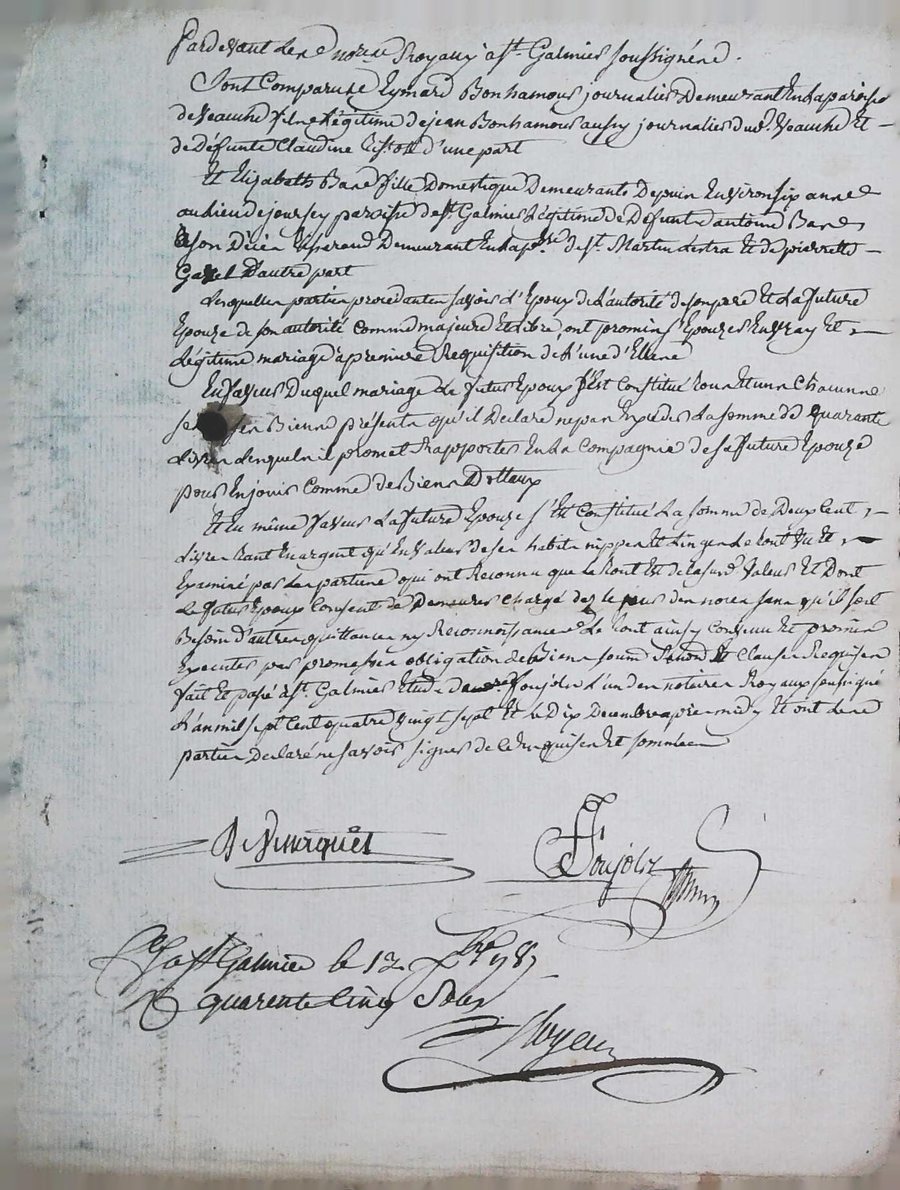 Pardevant les no.res Royaux a St. Galmier soussignés.
Sont Comparus Eymard Bonhamour journalier Demeurant En la paroisse
de Veauche fils Légitime de jean Bonhamour aussy journalier dud. Veauche Et
de Défunte Claudine d'une part
Et Elizabeth fille Domestique Demeurante Depuis Environ six années
au lieu de joursey paroisse de St. Galmier Légitime de Défunt antoine
a son Décès Demeurant En la psse de St. Martin Lestra Et de pierrette
D'autre part
Lesquelles parties procedantes savoir l'Epoux de L'autorité de son pere Et La future
Epouze de son autorité Comme majeure Et Libre, ont promis s'Epouzer En vray Et
Légitime mariage a premiere Requisition de L'une d'Elles
En faveur Duquel mariage Le futur Epoux s'Est Constitué Tous Et uns Chacuns
ses Biens présents qu'il Declare ne pas Exceder La somme de quarante
Livres Lesquels il promet Rapporter En La Compagnie de sa future Epouze
pour En jouir Comme de Biens Dottaux
Et En même faveur La future Epouze s'Est Constitué La somme de Deux Cent
Livres tant En argent qu'En valeur de ses habits nippes Et Linges Le tout vu Et
Examiné par Les parties qui ont Reconnu que Le tout Est de lasusd. valeur Et Dont
Le futur Epoux Consent de Demeurer Chargé dez le jour des noces sans qu'il soit
Besoin d'autres quittances ny Reconnoissances Le tout ainsy Convenu Et promis
Executer par promesses obligation de Biens soumd. Renond. Et Clauses Requises
fait Et passé a St. Galmier Etude de Me. Poujolz L'un des notaires Royaux soussigné
L'an mil sept Cent quatre vingt sept Et Le Dix Decembre apres midy Et ont Les
parties Declaré ne savoir signer de Ce Enquises Et sommées
Poujolz
a St Galmier le 12 Xbre 1787
quarente Cinq Sous